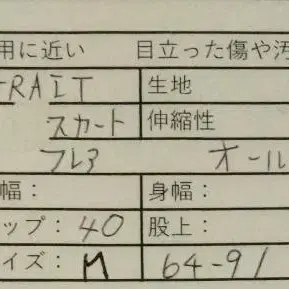 用に近い 目立った傷や汚
TRAIT 生地
スカート 伸縮性
フレア オール
幅： 身幅：
ップ：40 股上：
イズ：M 64-91